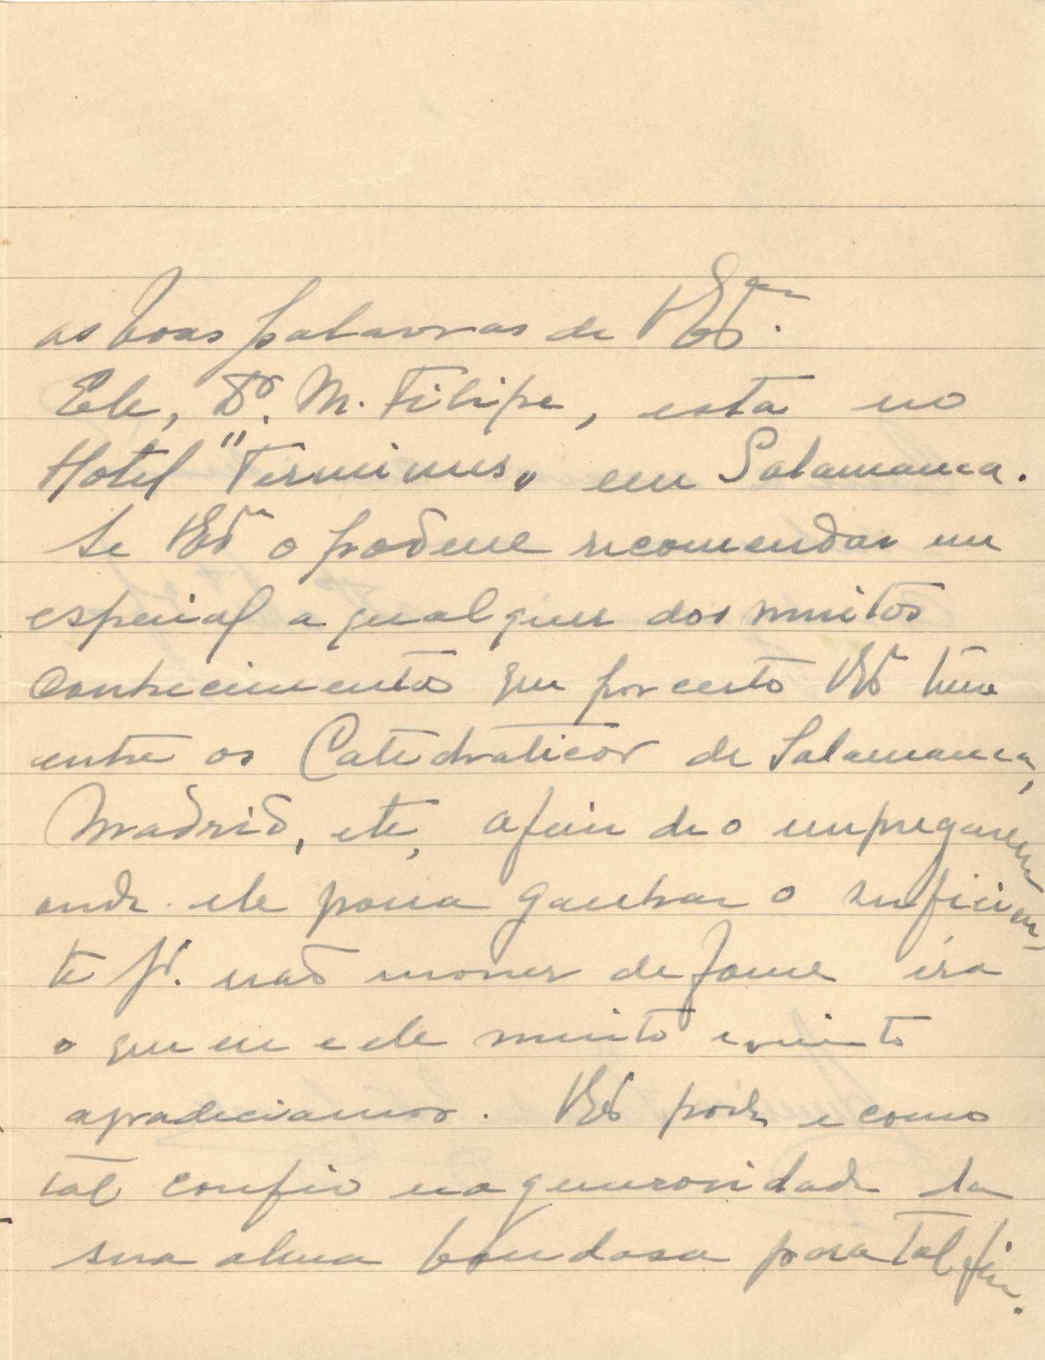 as boas palavras de VExª.
Ele, Dr. M. Filipe, está no
Hotel "Terminus" em Salamanca.
Se VExª o podesse recomendar em
especial a qualquer dos muitos
conhecimentos que por certo VExª tem
entre os Catedraticos de Salamanca,
Madrid, etc, afim de o empregarem
onde ele possa ganhar o suficien-
te pª. não morrer de fome era
o que eu e ele muito e muito
agradeciamos. VExª pode e como
tal confio na generosidade da
sua alma bondosa para tal fim.